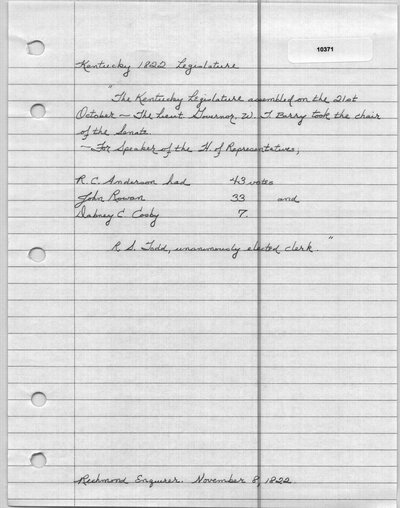 10371
Kentucky 1822 Legislature
"The Kentucky Legislature assembled on the 21st
October ~ The Lieut Governor, W. T. Barry took the chair
of the Senate
~ For Speaker of the H of Representatives,
R. C. Anderson had 43 votes
John Rowan 33 and
Dabney C. Cosby 7.
R. S. Todd, unanimously elected clerk."
Richmond Enquirer. November 8, 1822